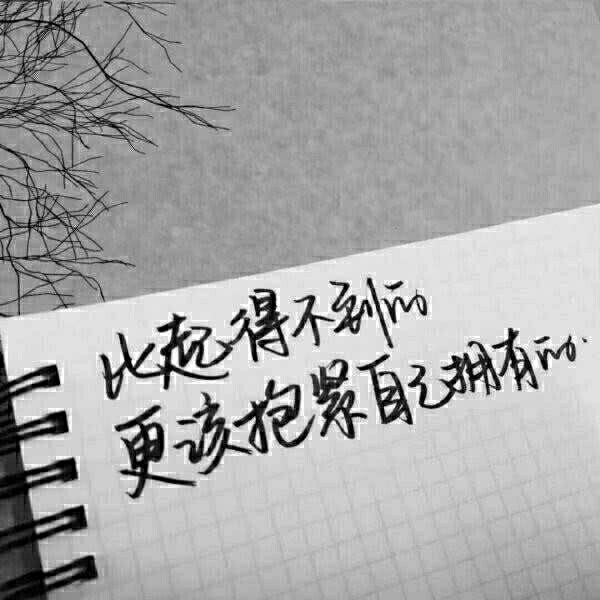 比起得不到的
更该抱紧自己拥有的.